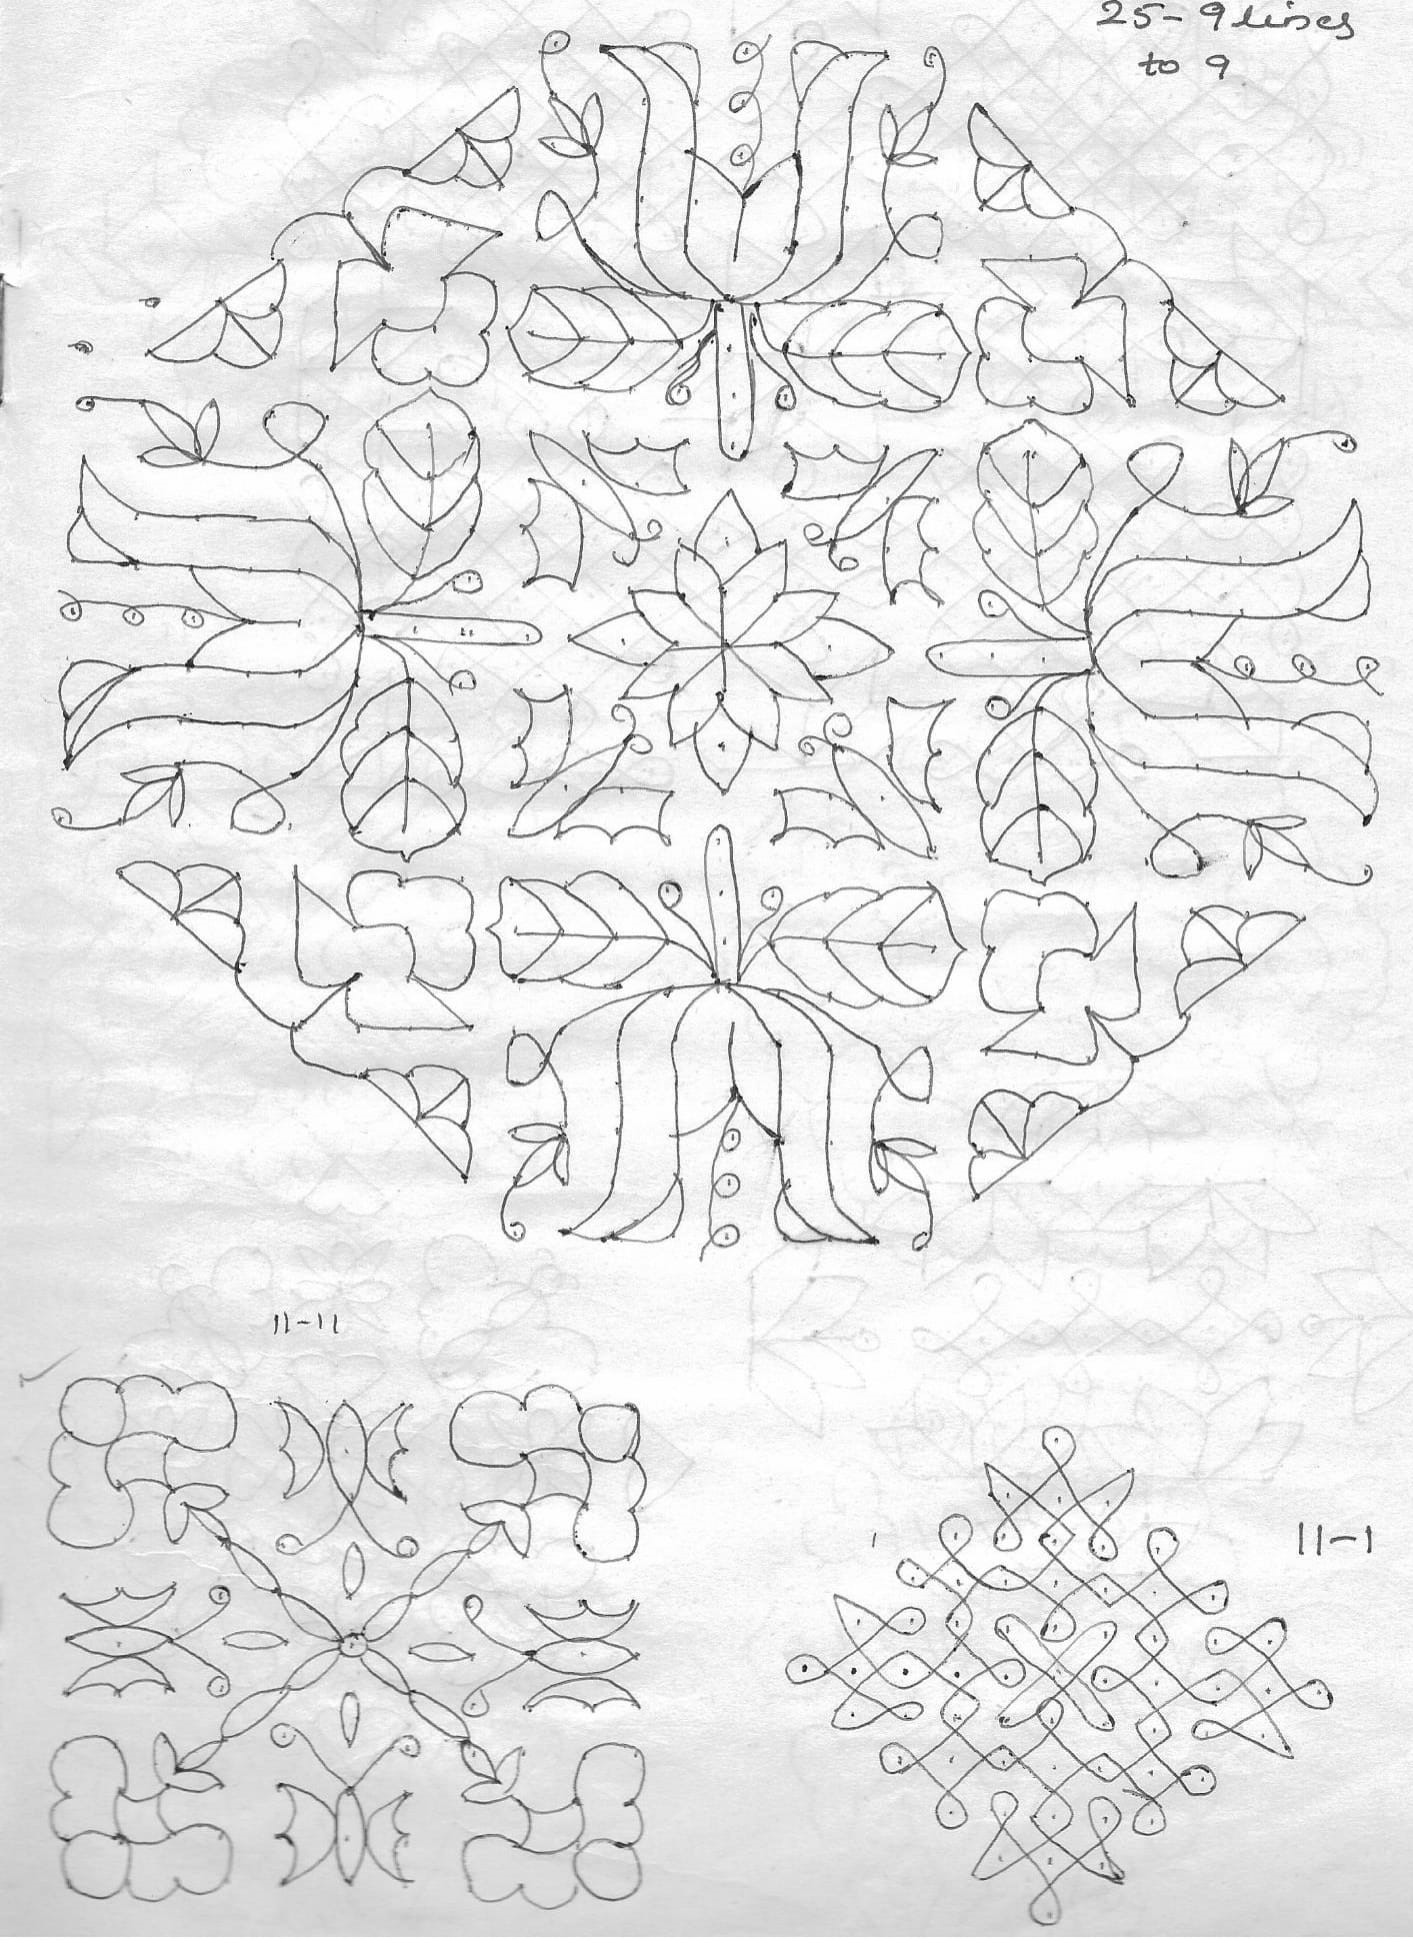 25-9 lines
to 9
11-11
11-1